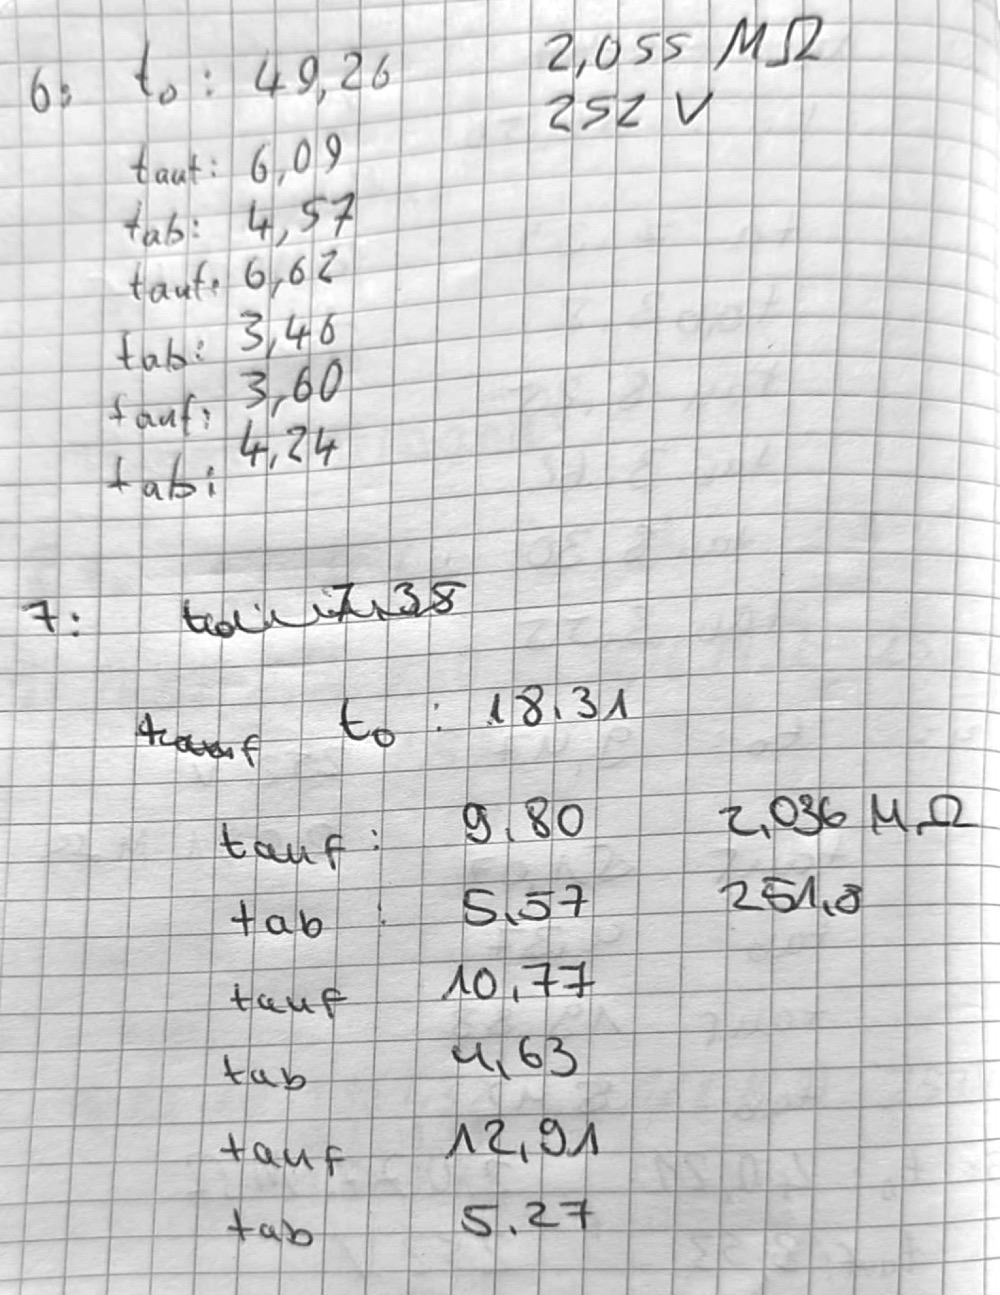 6: t₀: 49,26 2,055 MΩ
252 V
tauf: 6,09
tab: 4,57
tauf: 6,62
tab: 3,46
tauf: 3,60
tab: 4,24
7: 7,38
t₀: 18,31
tauf: 9,80 2,036 MΩ
tab: 5,57 251,8
tauf 10,77
tab 4,63
tauf 12,91
tab 5,27